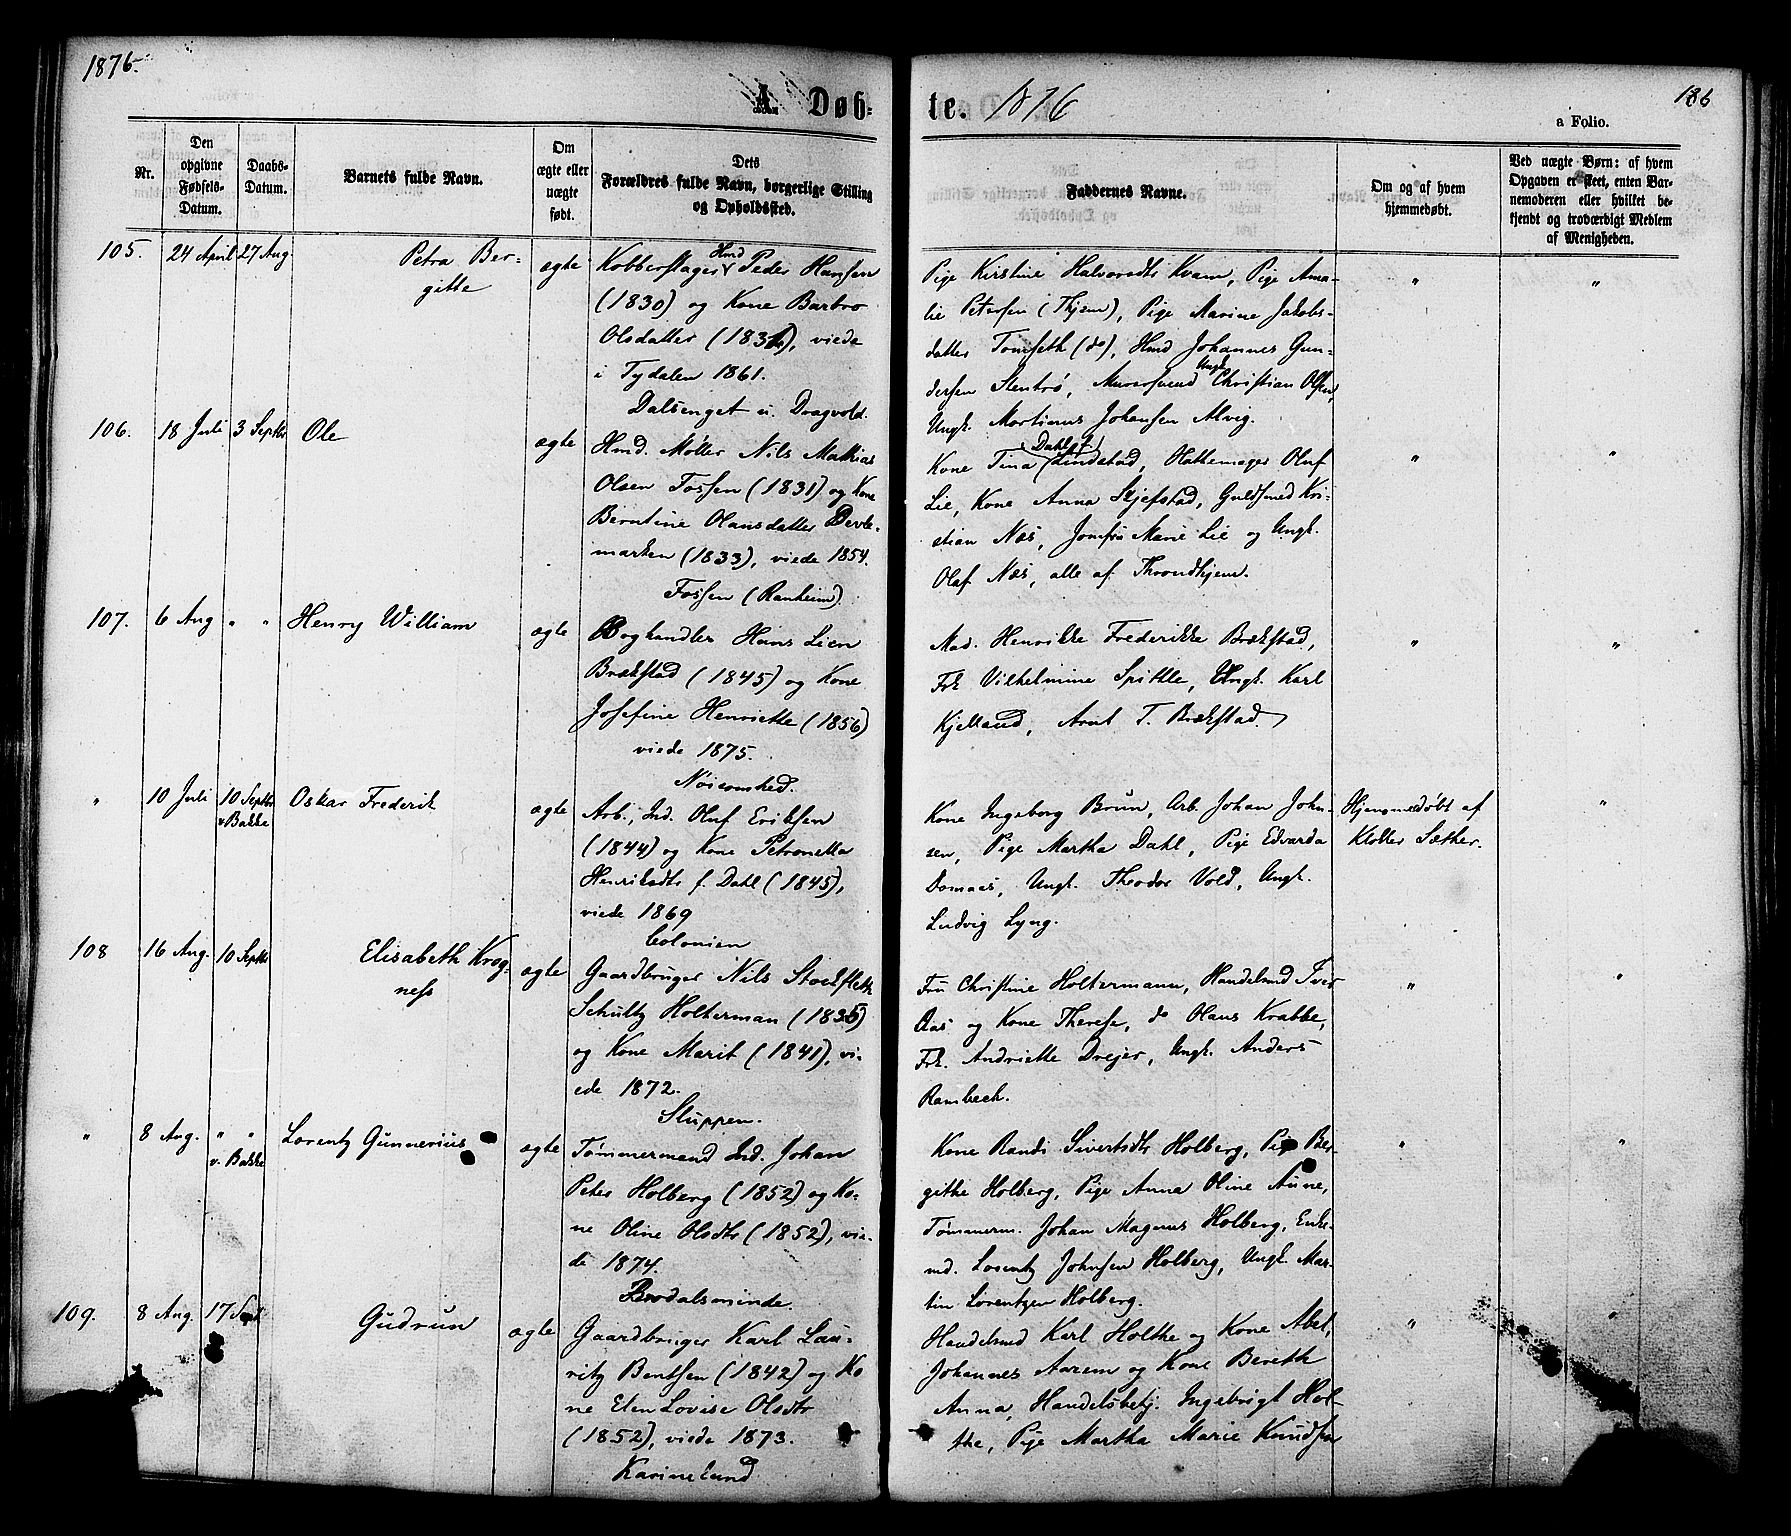 1876.
A. Døb-
te. 1876
186
a Folio.
Nr.
Den
opgivne
Fødsels-
Datum.
Daabs-
Datum.
Barnets fulde Navn.
Om
ægte eller
uægte
født.
Dets
Forældres fulde Navn, borgerlige Stilling
og Opholdssted.
Faddernes Navne.
Om og af hvem
hjemmedøbt.
Ved uægte Børn: af hvem
Opgaven er skeet, enten Bar-
nemoderen eller hvilket be-
kjendt og troværdigt Medlem
af Menigheden.
105. 24 April 27 Aug. Petra Ber-
gitte
ægte
Kobberslager Hmd Peder Hansen
(1830) og Kone Barbro
Olsdatter, viede
i Tydalen 1861.
Dalsenget u. Dragvold.
Pige Kirstine Halvorsdtr Kvam, Pige Ama-
lie Petersen (Thjem), Pige Marine Jakobs-
datter Tomseth (do), Hmd Johannes Gun-
dersen Stentrø, Murersvend Ungk. Christian Olsen,
Ungk. Martinus Johansen Alvig.
" "
106. 18 Juli 3 Septbr Ole
ægte
Hmd. Møller Nils Mathias
Olsen Fossen (1831) og Kone
Berntine Olausdatter Devle-
marken (1833), viede 1854.
Fossen (Ranheim).
Kone Tina (Dahl f.) Lindstad, Hattemager Oluf
Lie, Kone Anna Skjefstad, Guldsmed Kri-
stian Næs, Jomfru Marie Lie og Ungk.
Olaf Næs, alle af Throndhjem.
" "
107. 6 Aug " " Henry William
ægte
Boghandler Hans Lien
Brækstad (1845) og Kone
Josefine Henriette (1856)
viede 1875.
Nøisomhed.
Mad. Henrikke Frederikke Brækstad,
Frk Vilhelmine Spittle, Ungk. Karl
Kjelland, Arnt T. Brækstad.
" "
" 10 Juli 10 Septbr Oskar Frederik
v. Bakke
ægte
Arb., Ind. Oluf Eriksen
(1844) og Kone Petronella
Henriksdtr f. Dahl (1845),
viede 1869
Colonien
Kone Ingeborg Brun, Arb. Johan John-
sen, Pige Martha Dahl, Pige Edvarda
Domaas, Ungk. Theodor Vold, Ungk.
Ludvig Lyng.
Hjemmedøbt af
Klokker Sæther.
"
108 16 Aug. 10 Septbr Elisabeth Krog-
ness
ægte
Gaardbruger Nils Stockfleth
Schultz Holterman
og Kone Marit (1841), vi-
ede 1872.
Sluppen.
Fru Christine Holtermann, Handelsmd Iver
Aas og Kone Therese, do Olaus Krabbe,
Frk. Andriette Drejer, Ungk. Anders
Rambech.
" "
" 8 Aug. " " Lorentz Gunnerius
v. Bakke
ægte
Tømmermand Ind. Johan
Peter Holberg (1852) og Ko-
ne Oline Olsdtr (1852), vie-
de 1874.
Brodalsminde.
Kone Randi Sivertsdtr Holberg, Pige Ber-
githe Holberg, Pige Anna Oline Aune,
Tømmerm. Johan Magnus Holberg, Enke-
md. Lorentz Johnsen Holberg, Ungk. Mar-
tin Lorentzen Holberg.
" "
109. 8 Aug. 17 Sept Gudrun
ægte
Gaardbruger Karl Lau-
ritz Bentsen (1842) og Ko
ne Elen Lovise Olsdtr
(1852), viede 1873.
Karinelund
Handelsmd Karl Holthe og Kone Abel,
Johannes Aarem og Kone Bereth
Anna, Handelsbetj. Ingebrigt Hol-
the, Pige Martha Marie Knudsen
" "